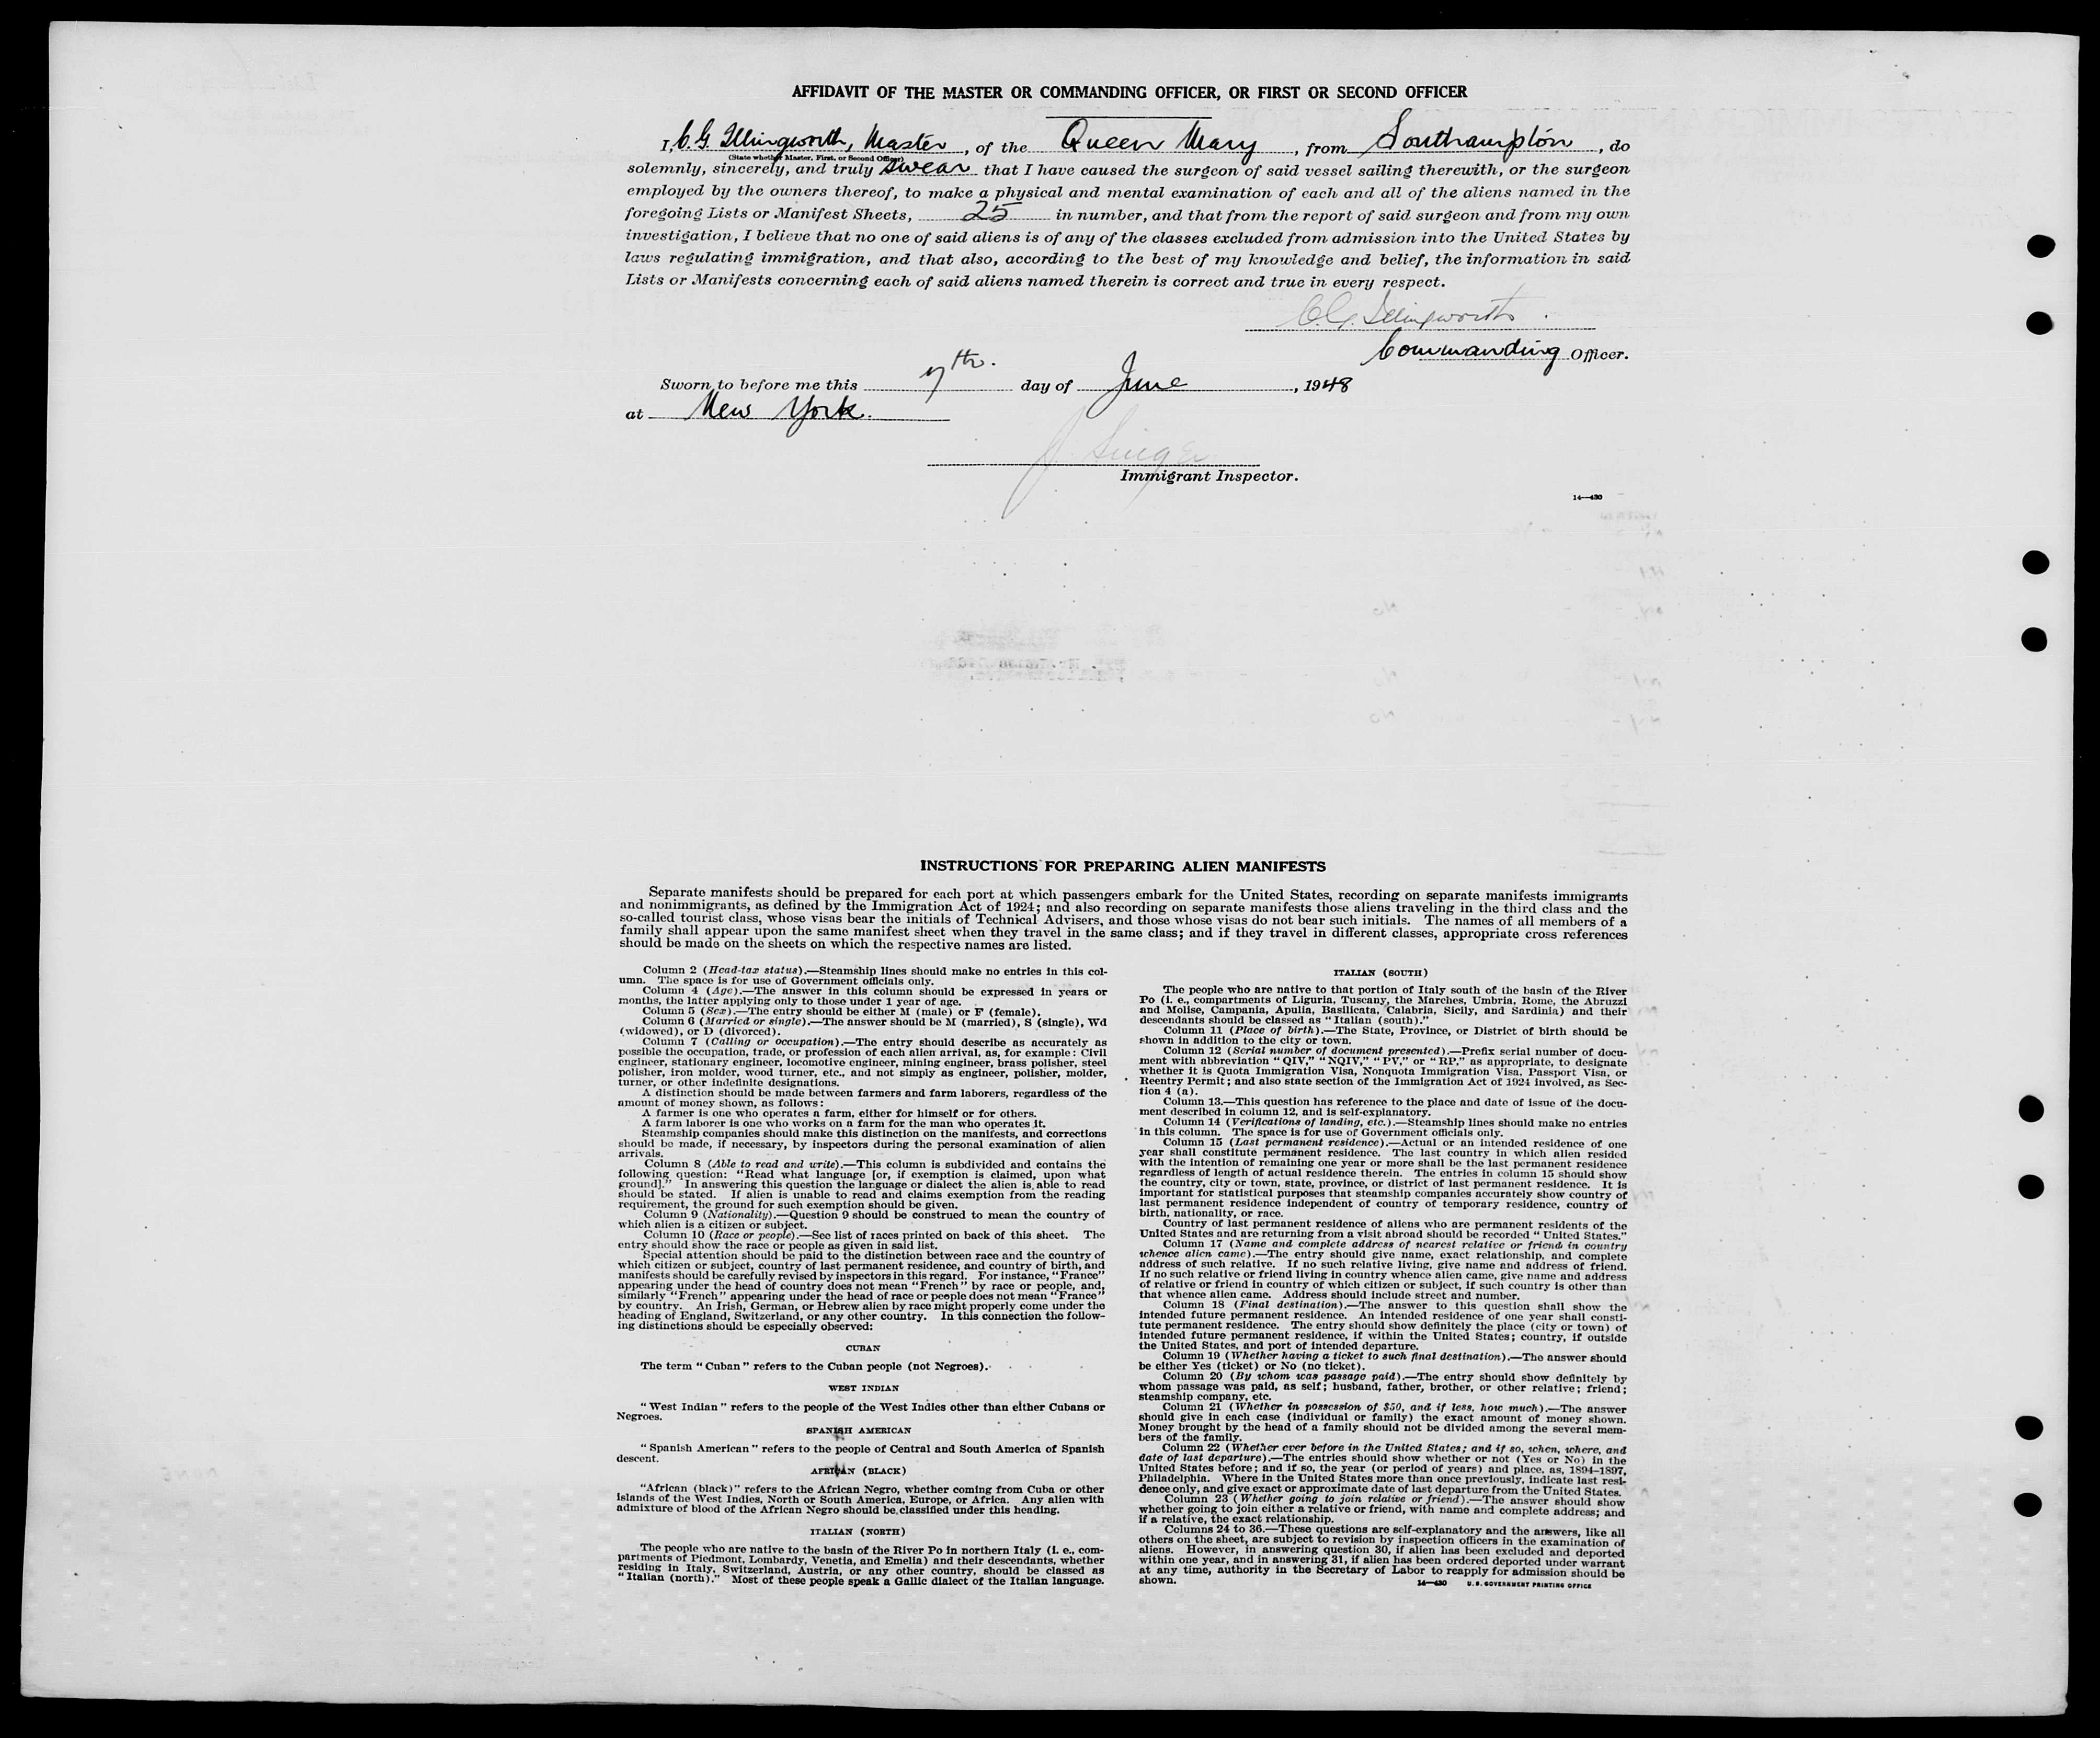 AFFIDAVIT OF THE MASTER OR COMMANDING OFFICER, OR FIRST OR SECOND OFFICER
I, C. G. Illingworth, Master, of the Queen Mary, from Southampton, do
(State whether Master, First, or Second Officer)
solemnly, sincerely, and truly swear that I have caused the surgeon of said vessel sailing therewith, or the surgeon
employed by the owners thereof, to make a physical and mental examination of each and all of the aliens named in the
foregoing Lists or Manifest Sheets, 25 in number, and that from the report of said surgeon and from my own
investigation, I believe that no one of said aliens is of any of the classes excluded from admission into the United States by
laws regulating immigration, and that also, according to the best of my knowledge and belief, the information in said
Lists or Manifests concerning each of said aliens named therein is correct and true in every respect.
C.G. Illingworth.
Commanding Officer.
Sworn to before me this 7th. day of June, 1948
at New York.
J. Singer
Immigrant Inspector.
14—430
INSTRUCTIONS FOR PREPARING ALIEN MANIFESTS
Separate manifests should be prepared for each port at which passengers embark for the United States, recording on separate manifests immigrants
and nonimmigrants, as defined by the Immigration Act of 1924; and also recording on separate manifests those aliens traveling in the third class and the
so-called tourist class, whose visas bear the initials of Technical Advisers, and those whose visas do not bear such initials. The names of all members of a
family shall appear upon the same manifest sheet when they travel in the same class; and if they travel in different classes, appropriate cross references
should be made on the sheets on which the respective names are listed.
Column 2 (Head-tax status).—Steamship lines should make no entries in this col-
umn. The space is for use of Government officials only.
Column 4 (Age).—The answer in this column should be expressed in years or
months, the latter applying only to those under 1 year of age.
Column 5 (Sex).—The entry should be either M (male) or F (female).
Column 6 (Married or single).—The answer should be M (married), S (single), Wd
(widowed), or D (divorced).
Column 7 (Calling or occupation).—The entry should describe as accurately as
possible the occupation, trade, or profession of each alien arrival, as, for example: Civil
engineer, stationary engineer, locomotive engineer, mining engineer, brass polisher, steel
polisher, iron molder, wood turner, etc., and not simply as engineer, polisher, molder,
turner, or other indefinite designations.
A distinction should be made between farmers and farm laborers, regardless of the
amount of money shown, as follows:
A farmer is one who operates a farm, either for himself or for others.
A farm laborer is one who works on a farm for the man who operates it.
Steamship companies should make this distinction on the manifests, and corrections
should be made, if necessary, by inspectors during the personal examination of alien
arrivals.
Column 8 (Able to read and write).—This column is subdivided and contains the
following question: "Read what language [or, if exemption is claimed, upon what
ground]." In answering this question the language or dialect the alien is able to read
should be stated. If alien is unable to read and claims exemption from the reading
requirement, the ground for such exemption should be given.
Column 9 (Nationality).—Question 9 should be construed to mean the country of
which alien is a citizen or subject.
Column 10 (Race or people).—See list of races printed on back of this sheet. The
entry should show the race or people as given in said list.
Special attention should be paid to the distinction between race and the country of
which citizen or subject, country of last permanent residence, and country of birth, and
manifests should be carefully revised by inspectors in this regard. For instance, "France"
appearing under the head of country does not mean "French" by race or people, and,
similarly "French" appearing under the head of race or people does not mean "France"
by country. An Irish, German, or Hebrew alien by race might properly come under the
heading of England, Switzerland, or any other country. In this connection the follow-
ing distinctions should be especially observed:
CUBAN
The term "Cuban" refers to the Cuban people (not Negroes).
WEST INDIAN
"West Indian" refers to the people of the West Indies other than either Cubans or
Negroes.
SPANISH AMERICAN
"Spanish American" refers to the people of Central and South America of Spanish
descent.
AFRICAN (BLACK)
"African (black)" refers to the African Negro, whether coming from Cuba or other
islands of the West Indies, North or South America, Europe, or Africa. Any alien with
admixture of blood of the African Negro should be classified under this heading.
ITALIAN (NORTH)
The people who are native to the basin of the River Po in northern Italy (i. e., com-
partments of Piedmont, Lombardy, Venetia, and Emelia) and their descendants, whether
residing in Italy, Switzerland, Austria, or any other country, should be classed as
"Italian (north)." Most of these people speak a Gallic dialect of the Italian language.
ITALIAN (SOUTH)
The people who are native to that portion of Italy south of the basin of the River
Po (i. e., compartments of Liguria, Tuscany, the Marches, Umbria, Rome, the Abruzzi
and Molise, Campania, Apulia, Basilicata, Calabria, Sicily, and Sardinia) and their
descendants should be classed as "Italian (south)."
Column 11 (Place of birth).—The State, Province, or District of birth should be
shown in addition to the city or town.
Column 12 (Serial number of document presented).—Prefix serial number of docu-
ment with abbreviation "QIV," "NQIV," "PV," or "RP," as appropriate, to designate
whether it is Quota Immigration Visa, Nonquota Immigration Visa, Passport Visa, or
Reentry Permit; and also state section of the Immigration Act of 1924 involved, as Sec-
tion 4 (a).
Column 13.—This question has reference to the place and date of issue of the docu-
ment described in column 12, and is self-explanatory.
Column 14 (Verifications of landing, etc.).—Steamship lines should make no entries
in this column. The space is for use of Government officials only.
Column 15 (Last permanent residence).—Actual or an intended residence of one
year shall constitute permanent residence. The last country in which alien resided
with the intention of remaining one year or more shall be the last permanent residence
regardless of length of actual residence therein. The entries in column 15 should show
the country, city or town, state, province, or district of last permanent residence. It is
important for statistical purposes that steamship companies accurately show country of
last permanent residence independent of country of temporary residence, country of
birth, nationality, or race.
Country of last permanent residence of aliens who are permanent residents of the
United States and are returning from a visit abroad should be recorded "United States."
Column 17 (Name and complete address of nearest relative or friend in country
whence alien came).—The entry should give name, exact relationship, and complete
address of such relative. If no such relative living, give name and address of friend.
If no such relative or friend living in country whence alien came, give name and address
of relative or friend in country of which citizen or subject, if such country is other than
that whence alien came. Address should include street and number.
Column 18 (Final destination).—The answer to this question shall show the
intended future permanent residence. An intended residence of one year shall consti-
tute permanent residence. The entry should show definitely the place (city or town) of
intended future permanent residence, if within the United States; country, if outside
the United States, and port of intended departure.
Column 19 (Whether having a ticket to such final destination).—The answer should
be either Yes (ticket) or No (no ticket).
Column 20 (By whom was passage paid).—The entry should show definitely by
whom passage was paid, as self; husband, father, brother, or other relative; friend;
steamship company, etc.
Column 21 (Whether in possession of $50, and if less, how much).—The answer
should give in each case (individual or family) the exact amount of money shown.
Money brought by the head of a family should not be divided among the several mem-
bers of the family.
Column 22 (Whether ever before in the United States; and if so, when, where, and
date of last departure).—The entries should show whether or not (Yes or No) in the
United States before; and if so, the year (or period of years) and place, as, 1894–1897,
Philadelphia. Where in the United States more than once previously, indicate last resi-
dence only, and give exact or approximate date of last departure from the United States.
Column 23 (Whether going to join relative or friend).—The answer should show
whether going to join either a relative or friend, with name and complete address; and
if a relative, the exact relationship.
Columns 24 to 36.—These questions are self-explanatory and the answers, like all
others on the sheet, are subject to revision by inspection officers in the examination of
aliens. However, in answering question 30, if alien has been excluded and deported
within one year, and in answering 31, if alien has been ordered deported under warrant
at any time, authority in the Secretary of Labor to reapply for admission should be
shown.
14—430 U. S. GOVERNMENT PRINTING OFFICE